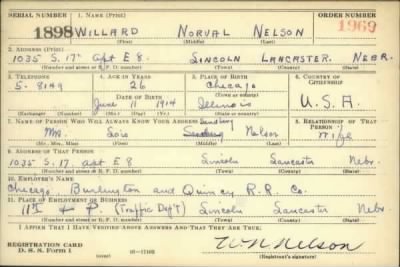 SERIAL NUMBER 1. NAME (Print) ORDER NUMBER
1898 WILLARD NORVAL NELSON 1969
(First) (Middle) (Last)
2. ADDRESS (Print)
1035 S. 17 apt E 8 LINCOLN LANCASTER NEBR.
(Number and street or R. F. D. number) (Town) (County) (State)
3. TELEPHONE 4. AGE IN YEARS 5. PLACE OF BIRTH 6. COUNTRY OF CITIZENSHIP
5-8149 26 Chicago
DATE OF BIRTH (Town or county)
June 11 1914 Illinois U. S. A.
(Exchange) (Number) (Mo.) (Day) (Yr.) (State or country)
7. NAME OF PERSON WHO WILL ALWAYS KNOW YOUR ADDRESS 8. RELATIONSHIP OF THAT PERSON
Mrs. Lois Sandberg Nelson Wife
(Mr., Mrs., Miss) (First) (Middle) (Last)
9. ADDRESS OF THAT PERSON
1035 S. 17. apt E 8 Lincoln Lancaster Nebr.
(Number and street or R. F. D. number) (Town) (County) (State)
10. EMPLOYER'S NAME
Chicago, Burlington and Quincy R.R. Co.
11. PLACE OF EMPLOYMENT OR BUSINESS
& P (Traffic Dep't) Lincoln Lancaster Nebr.
(Number and street or R. F. D. number) (Town) (County) (State)
I AFFIRM THAT I HAVE VERIFIED ABOVE ANSWERS AND THAT THEY ARE TRUE.
REGISTRATION CARD
D. S. S. Form 1 16-17105 W N Nelson
(Registrant's signature)